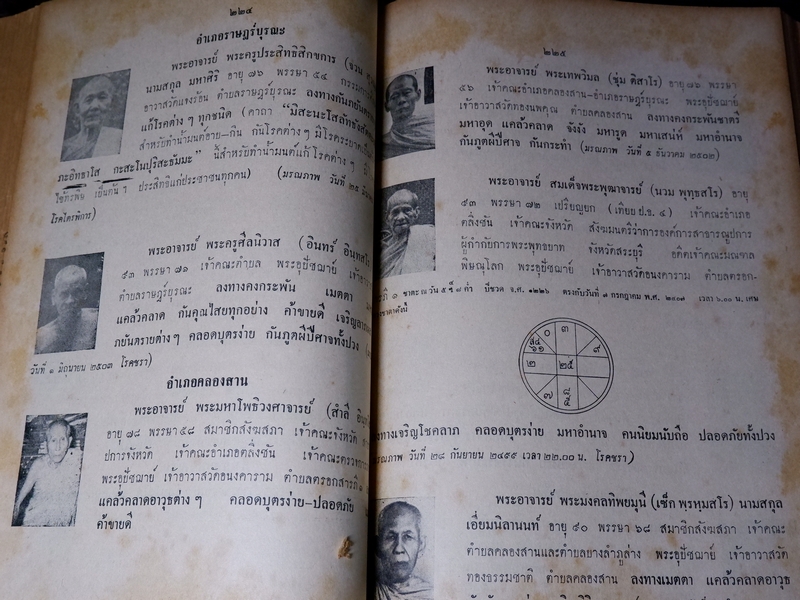 ๒๒๔
อำเภอราษฎร์บูรณะ
พระอาจารย์ พระครูประสิทธิสิกขการ (จวน
นามสกุล มหาศิริ อายุ ๗๖ พรรษา ๕๔
อาวาสวัดแจงร้อน ตำบลราษฎร์บูรณะ ลงทางกันภยันตราย
แก้โรคต่าง ๆ ทุกชนิด (คาถา
สำหรับทำน้ำมนต์อาย—กิน กันโรคต่าง ๆ มีโรคระบาด
ภะอิทธาโส กะสะโนปุริสะธัมมะ" นี้สำหรับทำน้ำมนต์แก้โรคต่าง ๆ
ไข้ทรพิษ เป็นต้น ๆ ประสิทธิแก่ประชาชนทุกคน) (มรณภาพ วันที่ ๒๕
โรคไตพิการ)
พระอาจารย์ พระครูศีลนิวาส (อินทร์ อินฺทสโร)
๙๓ พรรษา ๗๑ เจ้าคณะตำบล พระอุปัชฌาย์ เจ้าอาวาส
ตำบลราษฎร์บูรณะ ลงทางคงกระพัน เมตตา
แคล้วคลาด กันคุณไสยทุกอย่าง ค้าขายดี เจริญ
ภยันตรายต่าง ๆ คลอดบุตรง่าย กันภูตผีปีศาจทั้งปวง
วันที่ ๑ มิถุนายน ๒๕๐๓ โรคชรา)
อำเภอคลองสาน
พระอาจารย์ พระมหาโพธิวงศาจารย์ (สำลี
อายุ ๗๘ พรรษา ๕๘ สมาชิกสังฆสภา เจ้าคณะจังหวัด
ปการจังหวัด เจ้าคณะอำเภอตลิ่งชัน เจ้าคณะตรวจการ
พระอุปัชฌาย์ เจ้าอาวาสวัดอนงคาราม ตำบลตรอกสารภี ๑
แคล้วคลาดอาวุธต่าง ๆ คลอดบุตรง่าย—ปลอดภัย
ค้าขายดี
๒๒๕
พระอาจารย์ พระเทพวิมล (ชุ่ม ติสาโร) อายุ ๗๖ พรรษา
๕๖ เจ้าคณะอำเภอคลองสาน—อำเภอราษฎร์บูรณะ พระอุปัชฌาย์
เจ้าอาวาสวัดทองนพคุณ ตำบลคลองสาน ลงทางคงกระพันชาตรี
มหาอุด แคล้วคลาด จังงัง มหารูด มหาเสน่ห์ มหาอำนาจ
กันภูตผีปีศาจ กันกระทำ (มรณภาพ วันที่ ๕ ธันวาคม ๒๕๐๒)
พระอาจารย์ สมเด็จพระพุฒาจารย์ (นวม พุทฺธสโร) อายุ
๙๓ พรรษา ๗๒ เปรียญยก (เทียบ ป.ธ. ๔) เจ้าคณะอำเภอ
ตลิ่งชัน เจ้าคณะจังหวัด สังฆมนตรีว่าการองค์การสาธารณูปการ
ผู้กำกับการพระพุทธบาท จังหวัดสระบุรี อดีตเจ้าคณะมณฑล
พิษณุโลก พระอุปัชฌาย์ เจ้าอาวาสวัดอนงคาราม ตำบลตรอก-
ภี ๑ ชาตะ ณ วัน ๕ ฯ ๘ ค่ำ ปีชวด จ.ศ. ๑๒๒๖ ตรงกับวันที่ ๗ กรกฎาคม พ.ศ. ๒๔๐๗ เวลา ๖.๐๐ น. เศษ
ชาตาดังนี้
๐ ๓
๙
๒ ๒๕
๗
ทางเจริญโชคลาภ คลอดบุตรง่าย มหาอำนาจ คนนิยมนับถือ ปลอดภัยทั้งปวง
รณภาพ วันที่ ๒๘ กันยายน ๒๔๙๙ เวลา ๒๒.๐๐ น. โรคชรา)
พระอาจารย์ พระมงคลทิพยมุนี (เซ็ก พฺรหฺมสโร) นามสกุล
เอี่ยมนิลานนท์ อายุ ๙๐ พรรษา ๖๘ สมาชิกสังฆสภา เจ้าคณะ
ตำบลคลองสานและตำบลบางลำภูล่าง พระอุปัชฌาย์ เจ้าอาวาสวัด
ทองธรรมชาติ ตำบลคลองสาน ลงทางเมตตา แคล้วคลาดอาวุธ